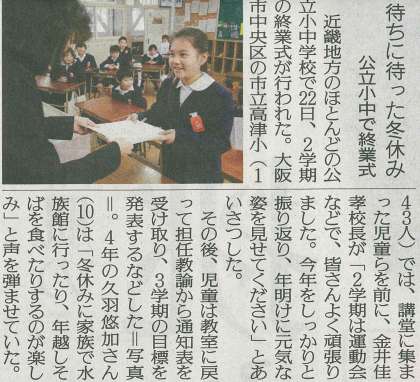 待ちに待った冬休み
公立小中で終業式
近畿地方のほとんどの公
立小中学校で22日、2学期
の終業式が行われた。大阪
市中央区の市立高津小(1
43人)では、講堂に集ま
った児童らを前に、金井佳
孝校長が「2学期は運動会
などで、皆さんよく頑張り
ました。今年をしっかりと
振り返り、年明けに元気な
姿を見せてください」とあ
いさつした。
その後、児童は教室に戻
って担任教諭から通知表を
受け取り、3学期の目標を
発表するなどした=写真
=。4年の久羽悠加さん
(10)は「冬休みに家族で水
族館に行ったり、年越しそ
ばを食べたりするのが楽し
み」と声を弾ませていた。